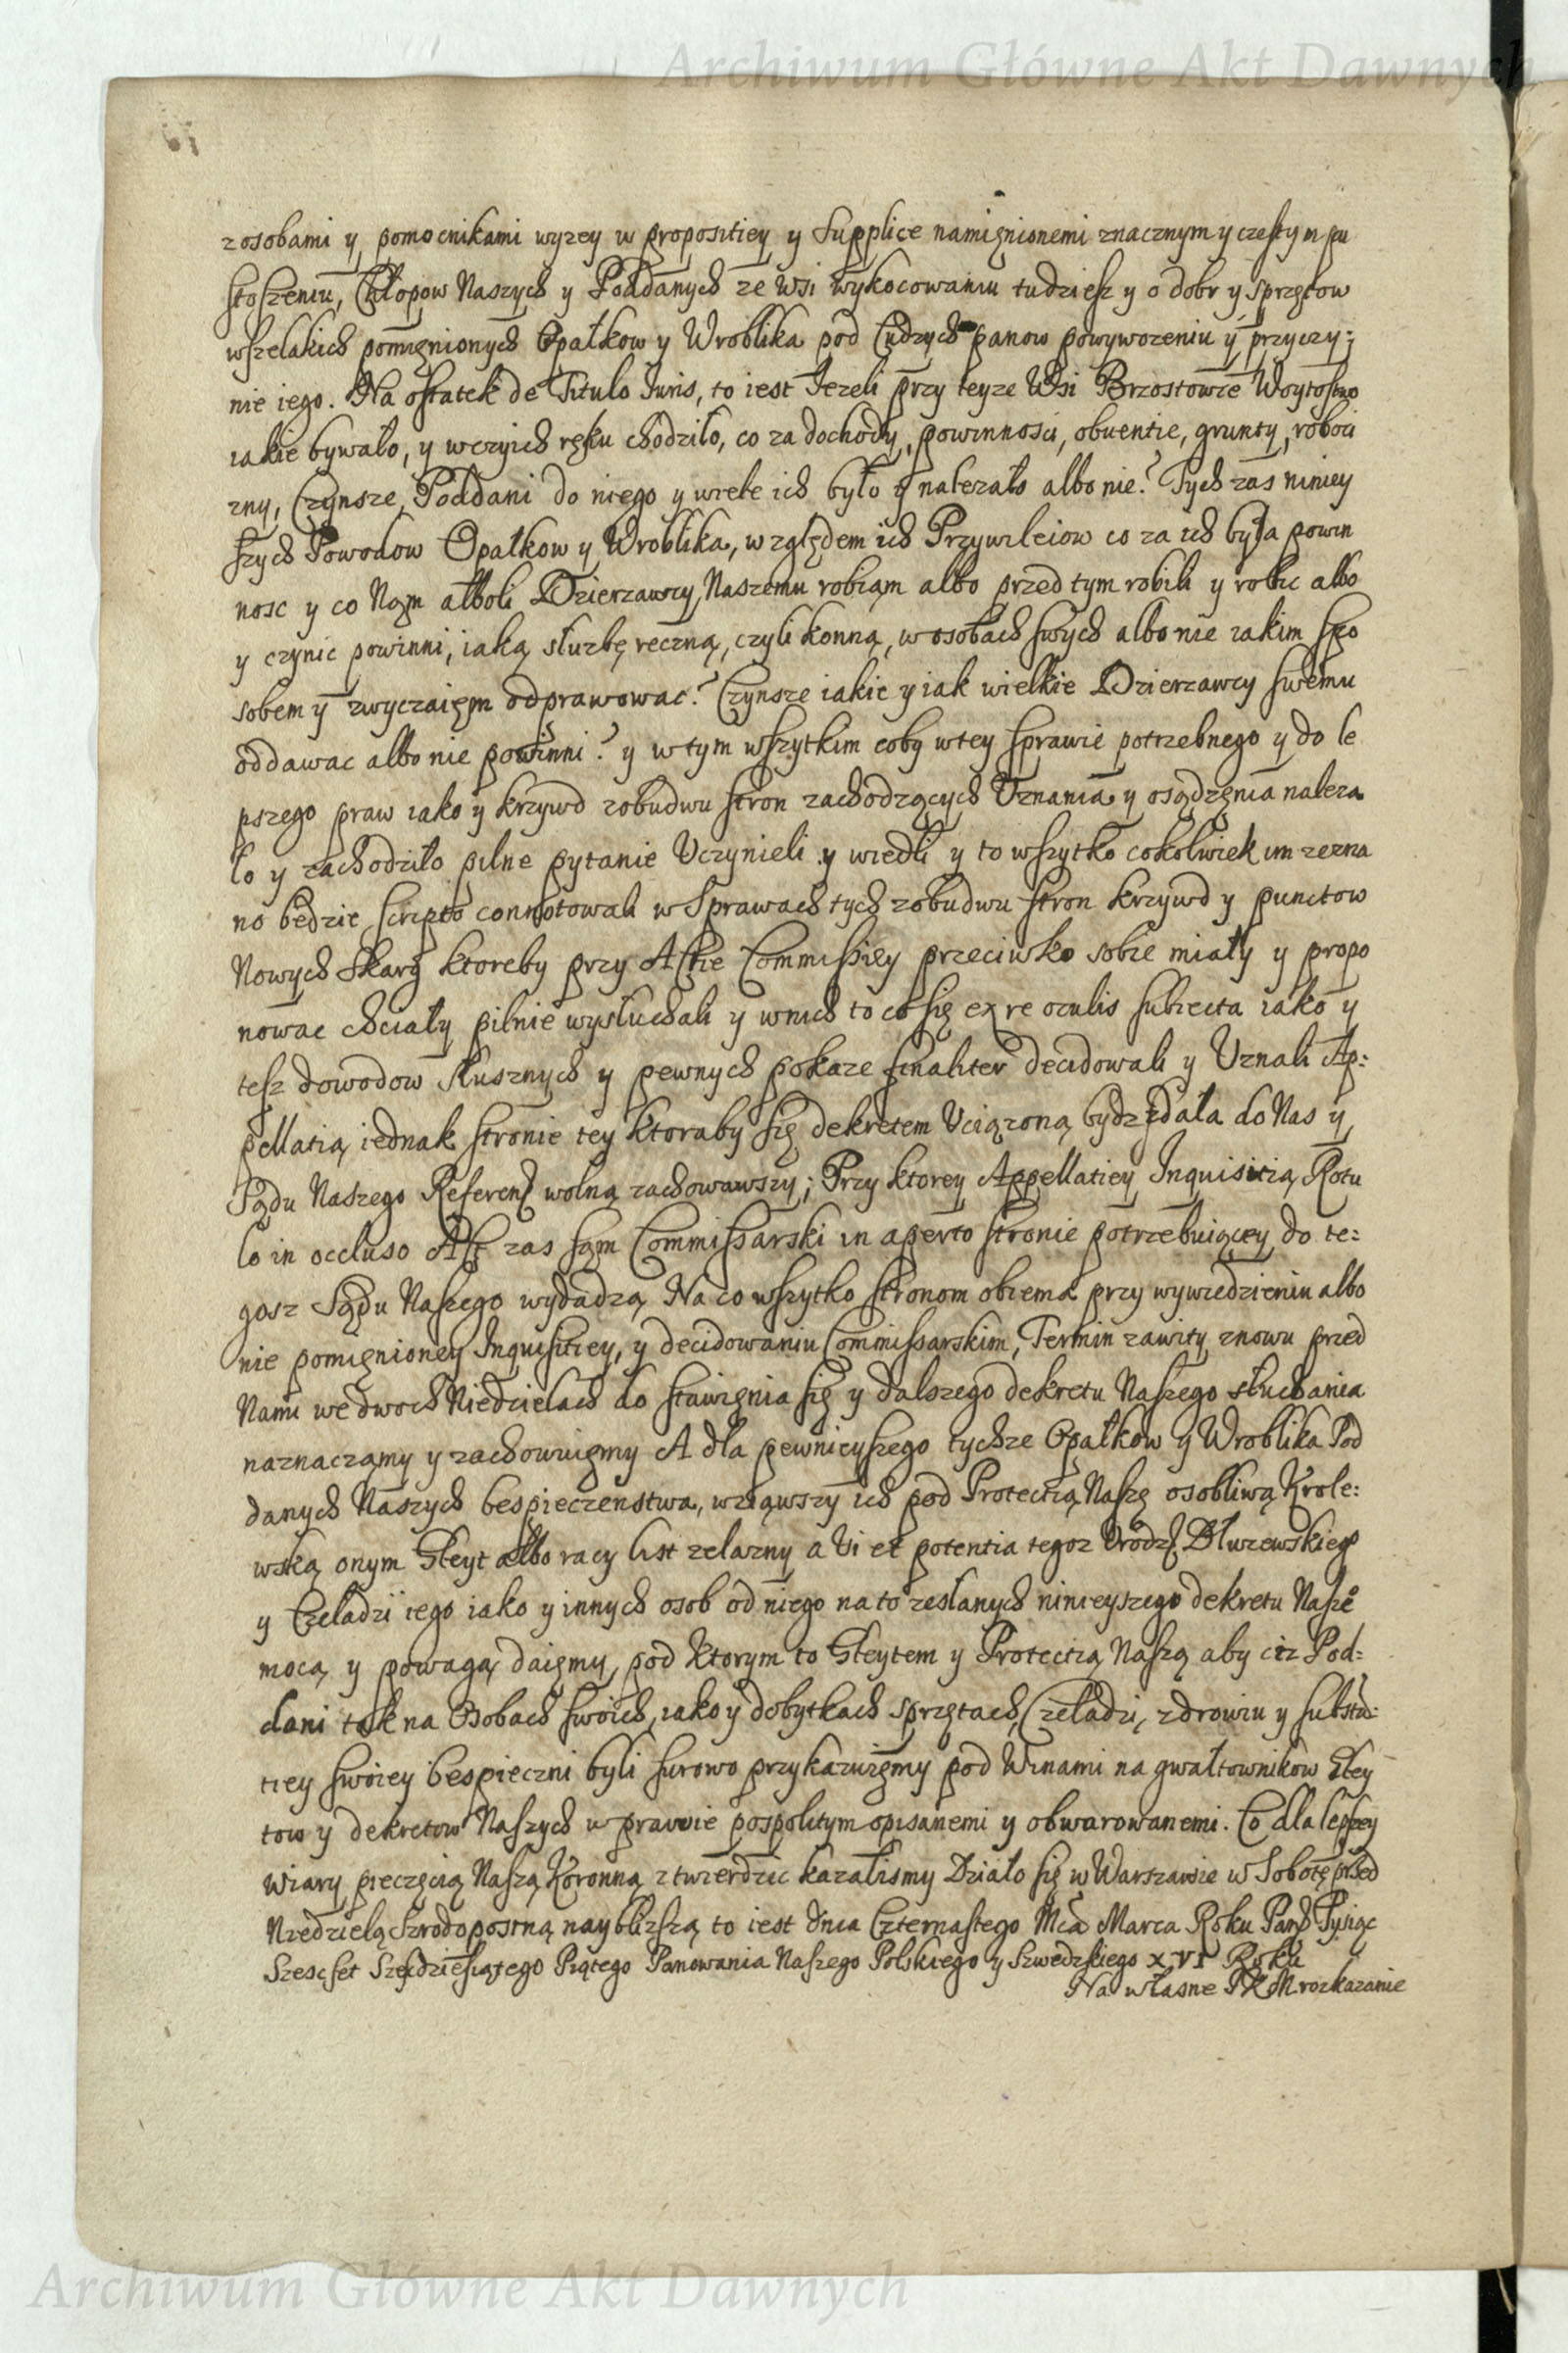 Archiwum Główne Akt Dawnych
z osobami y pomocnikami wyzey w propositiey y Supplice namięnionemi znacznym y czestym pu
stoszeniu, Chłopow Naszych y Poddanych ze Wsi wykocowaniu tudziesz y o dobr y sprzętow
wszelakich pomięnionych Opałkow y Wroblika pod Cudzych panow powywozeniu y przyczy:
nie iego. Na ostatek de Titulo Iuris, to iest Iezeli przy teyze Wsi Brzostowie Woytostwo
iakie bywało, y w czyich ręku chodziło, co za dochody, powinnosci, obuentie, grunty, roboci
zny, Czynsze, Poddani do niego y wiele ich było y nalezało albo nie? Tych zas niniey
szych Powodow Opałkow y Wroblika, względem ich Przywileiow co za ich była powin
nosc y co Nąm alboli Dzierzawcy Naszemu robiąm albo przed tym robili y robic albo
y czynic powinni, iaką słuzbę reczną, czyli konną, w osobach swych albo nie iakim spo
sobem y zwyczaięm odprawowac? Czynsze iakie y iak wielkie Dzierzawcy swemu
oddawac albo nie powinni? y w tym wszytkim coby w tey sprawie potrzebnego y do le
pszego praw iako y krzywd z obudwu stron zachodzących Uznania y osądzęnia naleza
lo y zachodziło pilne pytanie Uczynieli y wiedli y to wszytko cokolwiek im zezna
no będzie scripto connotowali w Sprawach tych z obudwu stron krzywd y punctow
Nowych Skarg ktoreby przy Akcie Commissiey przeciwko sobie miały y propo
nowac chciały pilnie wysłuchali y w nich to co się ex re oculis subiecta iako y
tesz dowodow słusznych y pewnych pokaze finaliter decidowali y Uznali Ap:
pellatią iednak stronie tey ktoraby się dekretem Uciązoną bydz zdała do Nas y
Sądu Naszego Referen wolną zachowawszy; Przy ktorey Appellatiey Inquisitią Rotu
lo in occluso Akt zas sąm Commissarski in aperto stronie potrzebuiącey do te:
gosz Sądu Naszego wydadzą Na co wszytko stronom obiema przy wywiedzieniu albo
nie pomięnioney Inquisitiey, y decidowaniu Commissarskim, Termin zawity znowu przed
Nami we dwoch Niedzielach do stawięnia się y dalszego dekretu Naszego słuchania
naznaczamy y zachowuięmy A dla pewnieyszego tychze Opałkow y Wroblika Pod
danych Naszych bespieczenstwa, wziąwszy ich pod Protectią Naszę osobliwą Krole:
wską onym Gleyt albo racy list zelazny a Vi et potentia tegoz Urodz Dłuzewskiego
y Czeladzi iego iako y innych osob od niego na to zesłanych ninieyszego dekretu Nasze
mocą y powagą daięmy, pod ktorym to Gleytem y Protectią Naszą aby ciz Pod:
dani tak na Osobach swoich, iako y dobytkach sprzętach, Czeladzi, zdrowiu y substa:
tiey swoiey bespieczni byli surowo przykazuięmy pod Winami na gwałtownikow Gley
tow y dekretow Naszych w prawie pospolitym opisanemi y obwarowanemi. Co dla lepszey
wiary pieczęcią Naszą Koronną ztwierdzic kazalismy Działo się w Warszawie w Sobotę przed
Niedzielą Szrodopostną naybliszszą to iest dnia Czternastego Mca Marca Roku Pans Tysiąc
Szescset Szescdziesiątego Piątego Panowania Naszego Polskiego y Szwedzkiego XVI Roku
Na własne JKM rozkazanie
Archiwum Główne Akt Dawnych